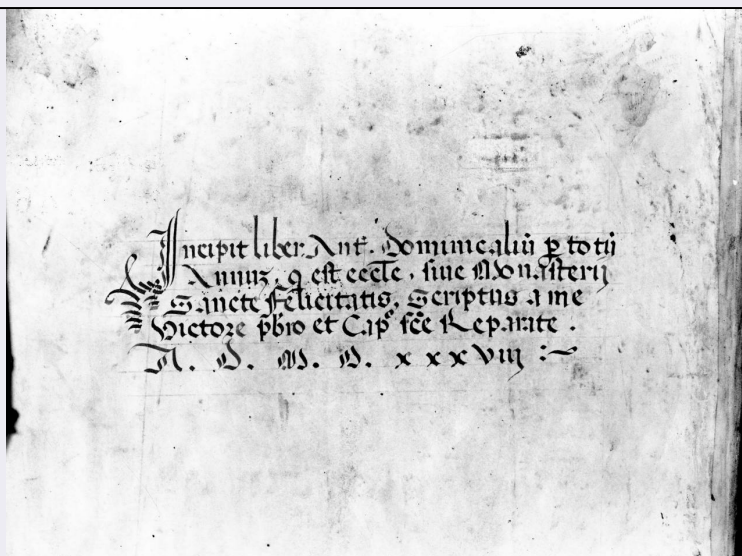 Incipit liber Ant. Dominicaliũ ꝑ totũ
Annuꝫ, q est eccłe, siue Monasterij
Sancte Felicitatis, Scriptus a me
Victore pb̃ro et Capᵒ sc̃e Reparate .
A. D. M. D. xxxviij :~